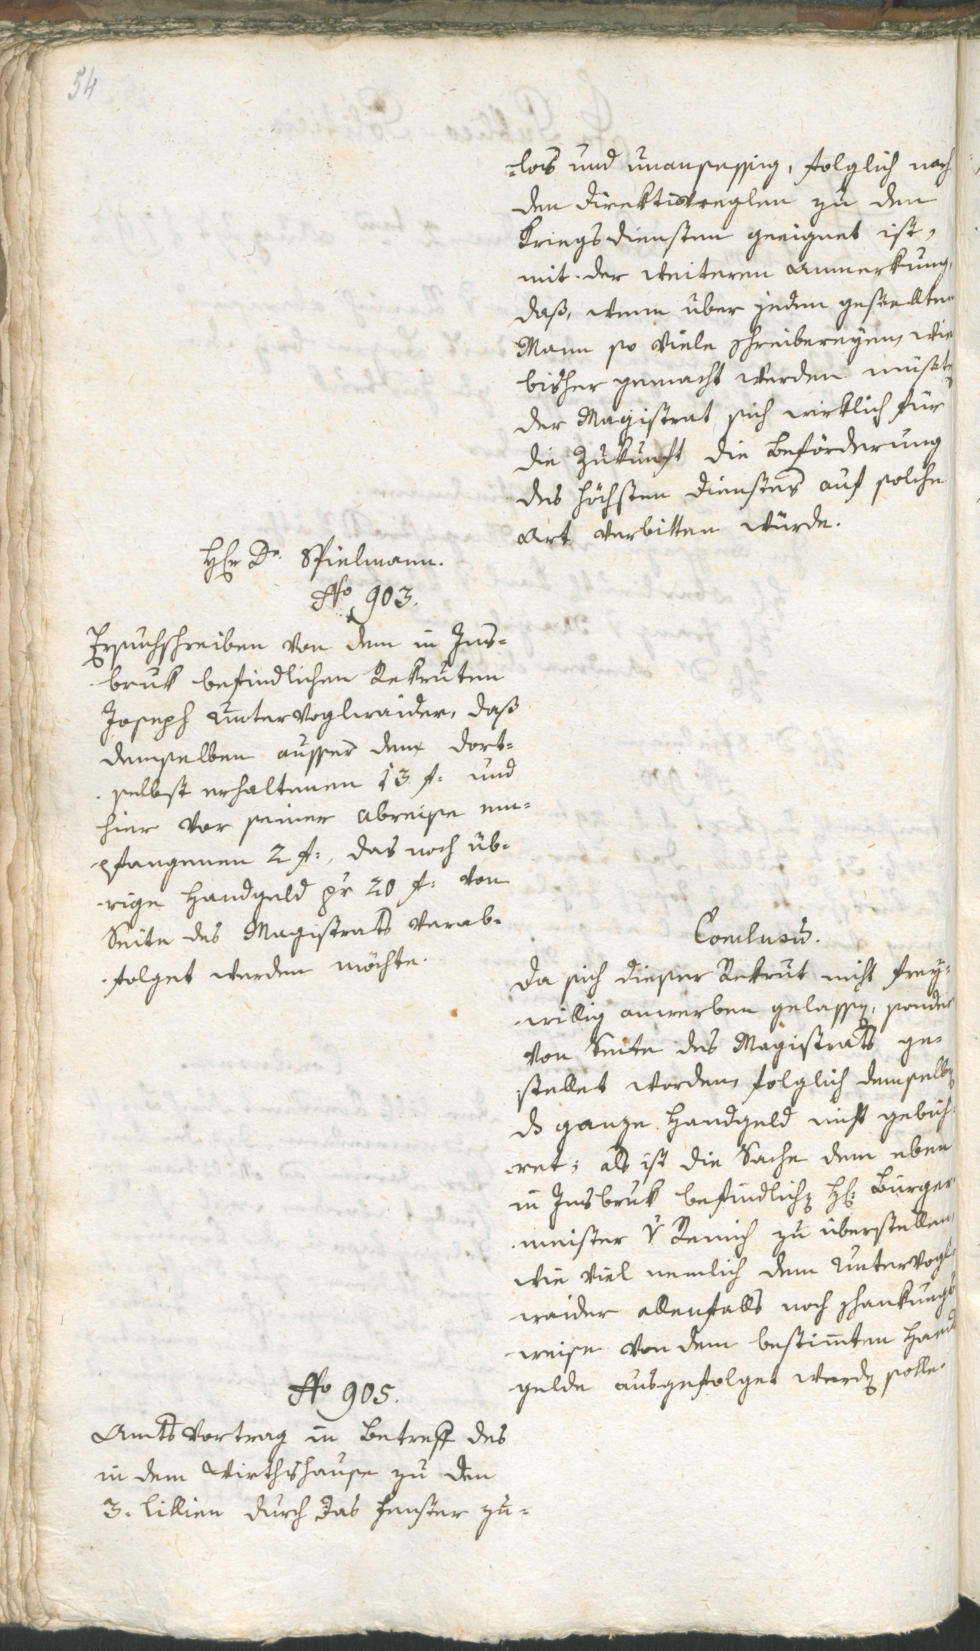 54
-los und unansessig, folglich nach
den Direktivreglen zu den
Kriegsdiensten geeignet ist,
mit der weiteren Anmerkung,
daß, wenn über jeden gestellten
Mann so viele Schreibereyen, wie
bisher gemacht werden müßte
der Magistrat sich wirklich für
die Zukunft die Beförderung
des höchsten Dienstes auf solche
Art verbitten würde.
H[err] Dr. Spielmann.
No 903.
Ersuchschreiben von dem in Ins-
bruk befindlichen Rekruten
Joseph Untervoglraider, daß
demselben ausser dem dort-
selbst erhaltenen 13 f: und
hier vor seiner Abreise em-
pfangenen 2 f:, das noch üb-
rige Handgeld pr 20 f: von
Seite des Magistrats verab-
folget werden möchte.
Conclusum.
Da sich dieser Rekrut nicht frey-
willig anwerben gelassen, sonder
von Seite des Magistrats ge-
stellet worden, folglich demselben
das ganze Handgeld nicht gebüh-
ret; als ist die Sache dem eben
in Insbruk befindlichen H: Bürger
meister v Remich zu überstellen,
wie viel nemlich dem Untervogl-
raider allenfalls noch schankungs
weise von dem bestimten Hand
gelde ausgefolget werden solle.
No 905.
Amts Vortrag in Betreff des
in dem Wirthshause zu den
3. Lillien durch das Fenster zu-